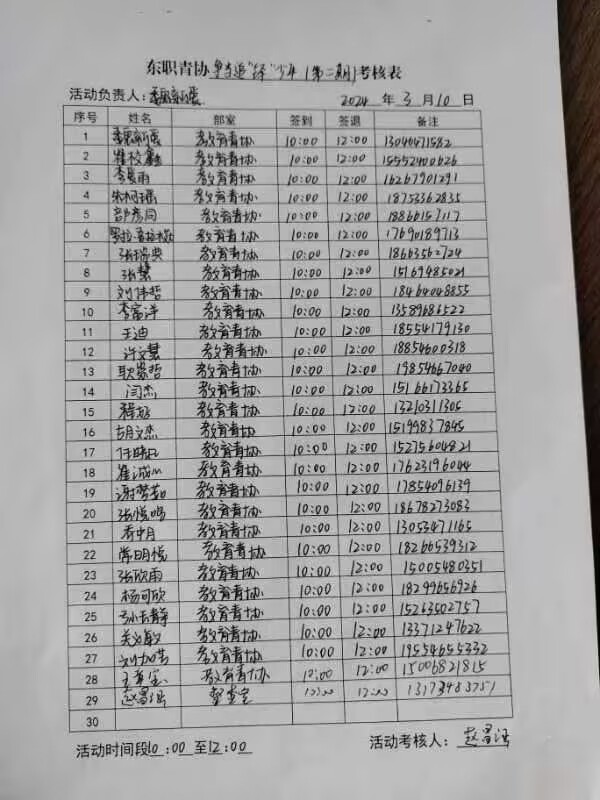 东职青协争当追“锋”少年（第二期）考核表
活动负责人： 2024 年 3 月 10 日
序号 姓名 部室 签到 签退 备注
1 教育青协 10:00 12:00 13040471582
2 崔校鑫 教育青协 10:00 12:00 15552400626
3 李昊雨 教育青协 10:00 12:00 16267901291
4 教育青协 10:00 12:00 18753362835
5 教育青协 10:00 12:00 18866157117
6 教育青协 10:00 12:00 17690189713
7 张瑞典 教育青协 10:00 12:00 18663562724
8 张慧 教育青协 10:00 12:00 15169485021
9 刘伟哲 教育青协 10:00 12:00 18464048855
10 李富洋 教育青协 10:00 12:00 13589686522
11 王迪 教育青协 10:00 12:00 18554179130
12 许文慧 教育青协 10:00 12:00 18854600318
13 耿崇哲 教育青协 10:00 12:00 19854667040
14 闫杰 教育青协 10:00 12:00 15166173365
15 教育青协 10:00 12:00 13210311305
16 胡文杰 教育青协 10:00 12:00 15199837845
17 任晴 教育青协 10:00 12:00 15275604821
18 崔诚 教育青协 10:00 12:00 17623196044
19 谢梦茹 教育青协 10:00 12:00 17854096139
20 张悦鸣 教育青协 10:00 12:00 18678273083
21 教育青协 10:00 12:00 13053471165
22 常明悦 教育青协 10:00 12:00 18266539312
23 张欣雨 教育青协 10:00 12:00 15005480351
24 杨可欣 教育青协 10:00 12:00 18299656926
25 教育青协 10:00 12:00 15263502757
26 教育青协 10:00 12:00 13371247622
27 教育青协 10:00 12:00 19554655332
28 教育青协 10:00 12:00 15006821815
29 赵昌 10:00 12:00
30
活动时间段10：00 至12：00 活动考核人： 赵昌